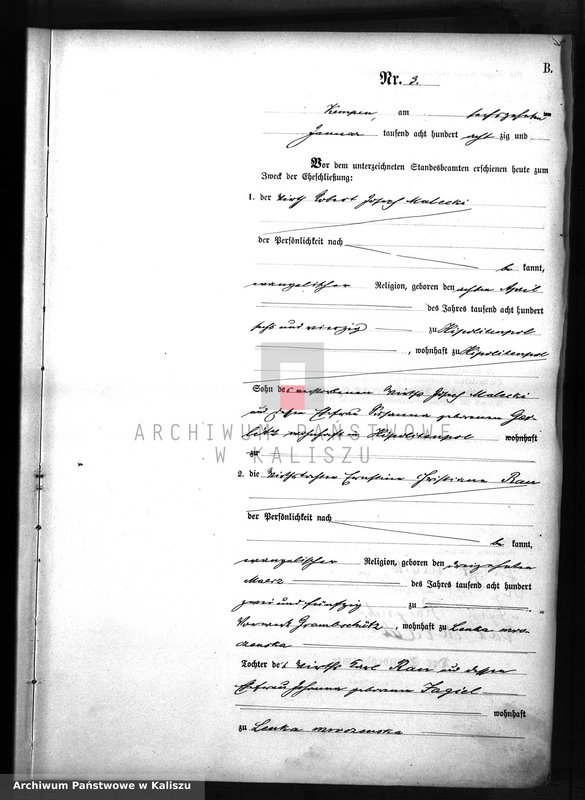 B.
Nr. 3.
Kempen, am sechszehnten
Januar tausend acht hundert acht zig und
Vor dem unterzeichneten Standesbeamten erschienen heute zum
Zweck der Eheschließung:
1. der Wirth Robert Josef Malecki
der Persönlichkeit nach
be kannt,
evangelischer Religion, geboren den achten April
des Jahres tausend acht hundert
sechs und vierzig zu Hipolitenpol
, wohnhaft zu Hipolitenpol
Sohn des verstorbenen Wirths Josef Malecki
und dessen Ehefrau Susanna geborenen
wohnhaft in Hipolitenpol wohnhaft
zu
2. die Wirthstochter Ernstine Christiane Rau
der Persönlichkeit nach
be kannt,
evangelischer Religion, geboren den dreizehnten
Maerz des Jahres tausend acht hundert
zwei und fünfzig zu
Vorwerk Grambschütz, wohnhaft zu Lenka mro-
czenska
Tochter des Wirths Karl Rau und dessen
Ehefrau Johanna geborene Jagiel
wohnhaft
zu Lenka mroczenska
ARCHIWUM PAŃSTWOWE
W KALISZU
Archiwum Państwowe w Kaliszu